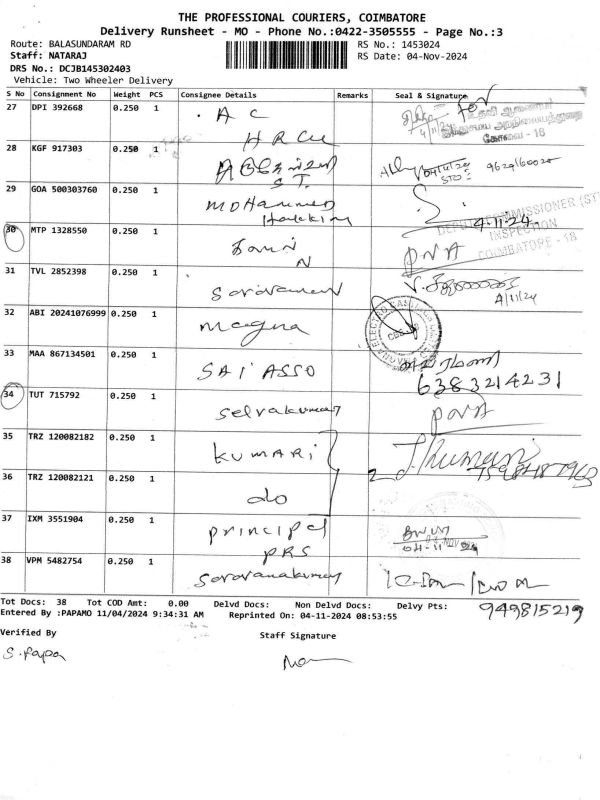 THE PROFESSIONAL COURIERS, COIMBATORE
Delivery Runsheet - MO - Phone No.:0422-3505555 - Page No.:3
Route: BALASUNDARAM RD RS No.: 1453024
Staff: NATARAJ RS Date: 04-Nov-2024
DRS No.: DCJB145302403
Vehicle: Two Wheeler Delivery
S No Consignment No Weight PCS Consignee Details Remarks Seal & Signature
27 DPI 392668 0.250 1 A C
HRCE
உதவி ஆணையர்
கோவை - 18
28 KGF 917303 0.250 1
S T.
04/11/24
STO
29 GOA 500303760 0.250 1 MOHammed
Hakkim
4.11.24
DEPUTY COMMISSIONER (ST)
INSPECTION
COIMBATORE - 18
30 MTP 1328550 0.250 1
N
DNA
31 TVL 2852398 0.250 1 Saravanan
4/11/24
32 ABI 20241076999 0.250 1 magna
33 MAA 867134501 0.250 1 SAI ASSO
6383214231
34 TUT 715792 0.250 1 Selvakumar
DNA
35 TRZ 120082182 0.250 1 KUMARI
2
36 TRZ 120082121 0.250 1 do
37 IXM 3551904 0.250 1 principal
PRS
04-11-24
38 VPM 5482754 0.250 1 Saravanakumar
Tot Docs: 38 Tot COD Amt: 0.00 Delvd Docs: Non Delvd Docs: Delvy Pts:
949815219
Entered By :PAPAMO 11/04/2024 9:34:31 AM Reprinted On: 04-11-2024 08:53:55
Verified By Staff Signature
S. Papa